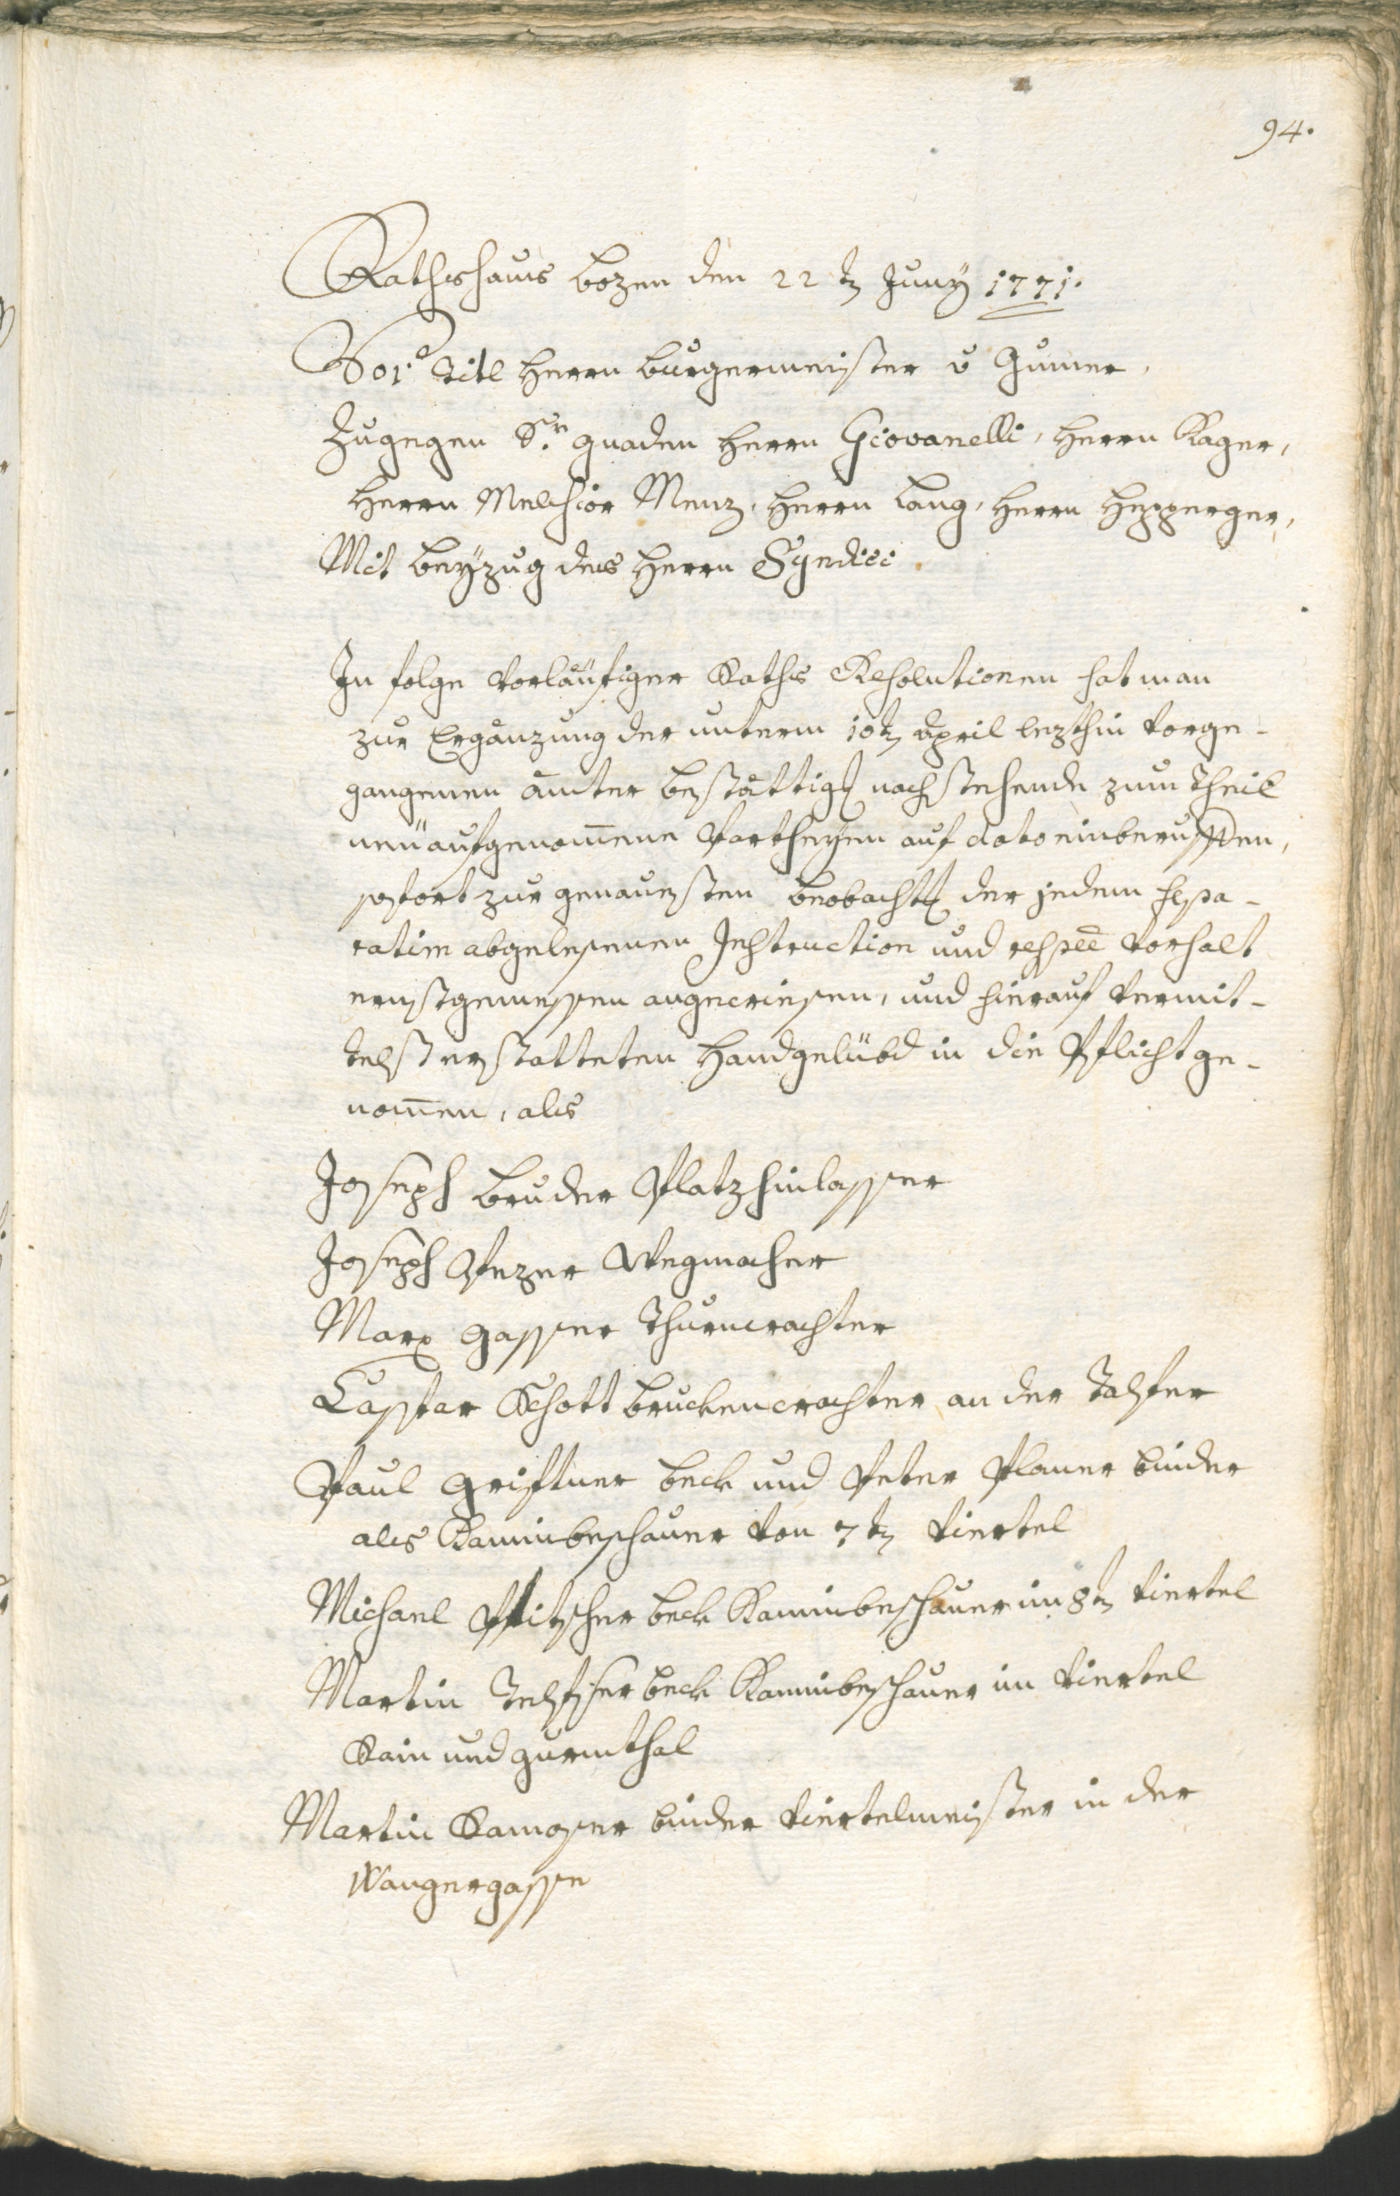 94.
Rathshaus Bozen den 22t Juny 1771.
Vor Titl Herrn Burgermeister v Gumer,
Zugegen Sr. gnaden Herrn Giovanelli, Herrn Rager,
Herrn Melchior Menz, Herrn Lang, Herrn Hepperger,
Mit beyzug des Herrn Syndici.
In folge vorläufiger Raths Resolutionen hat man
zur Ergänzung der unterm 10t April lezthin vorge-
gangenen ämter bestättig nachstehende zum Theil
neüaufgenom̄ene Partheyen auf dato einberuffen,
sofort zur genauesten beobacht der jedem sepa-
ratim abgelesenen Instruction und respec̄ Vorhalt
ernstgemessen angewiesen, und hierauf vermit-
telst erstatteten Handgelübd in die Pflicht ge-
nom̄en, als
Joseph Bruder Platzhinlasser
Joseph Pezer Wegmacher
Marx Gasser Thurnwachter
Caspar Schott Bruckenwachter an der Talfer
Paul Griftner beck und Peter Planer binder
als Kaminbeschauer von 7t Viertel
Michael Pfitscher beck Kaminbeschauer im 8t Viertel
Martin Telfser beck Kaminbeschauer im Viertel
Rain und gurmthal
Martin Ramoser binder Viertelmeister in der
Wangergasse